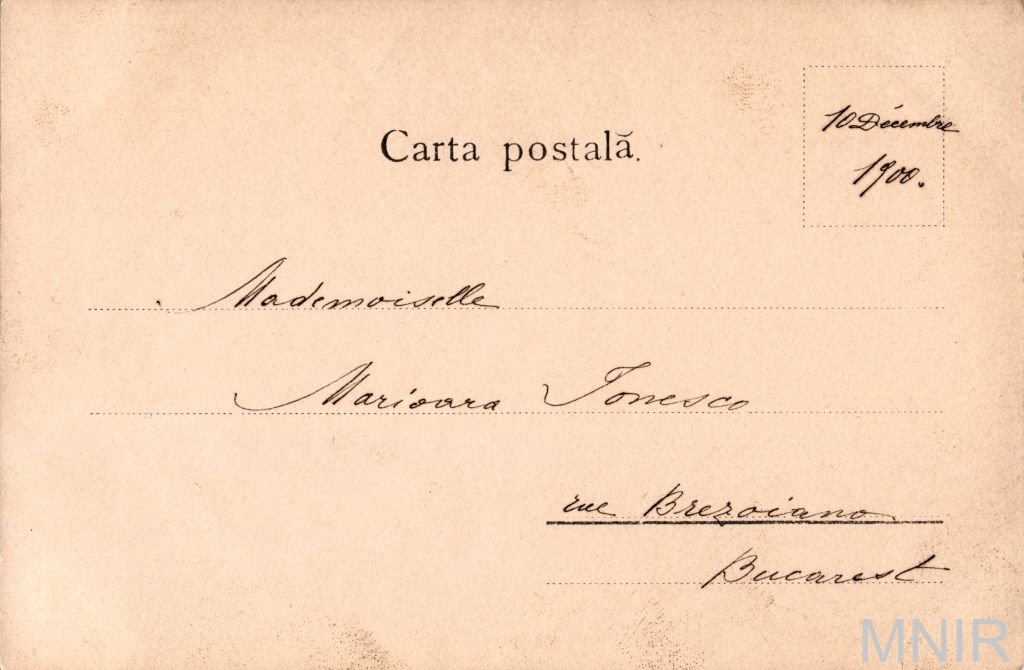 Carta postală.
10 Décembre
1900.
Mademoiselle
Marioara Ionesco
rue Brezoiano
Bucarest
MNIR